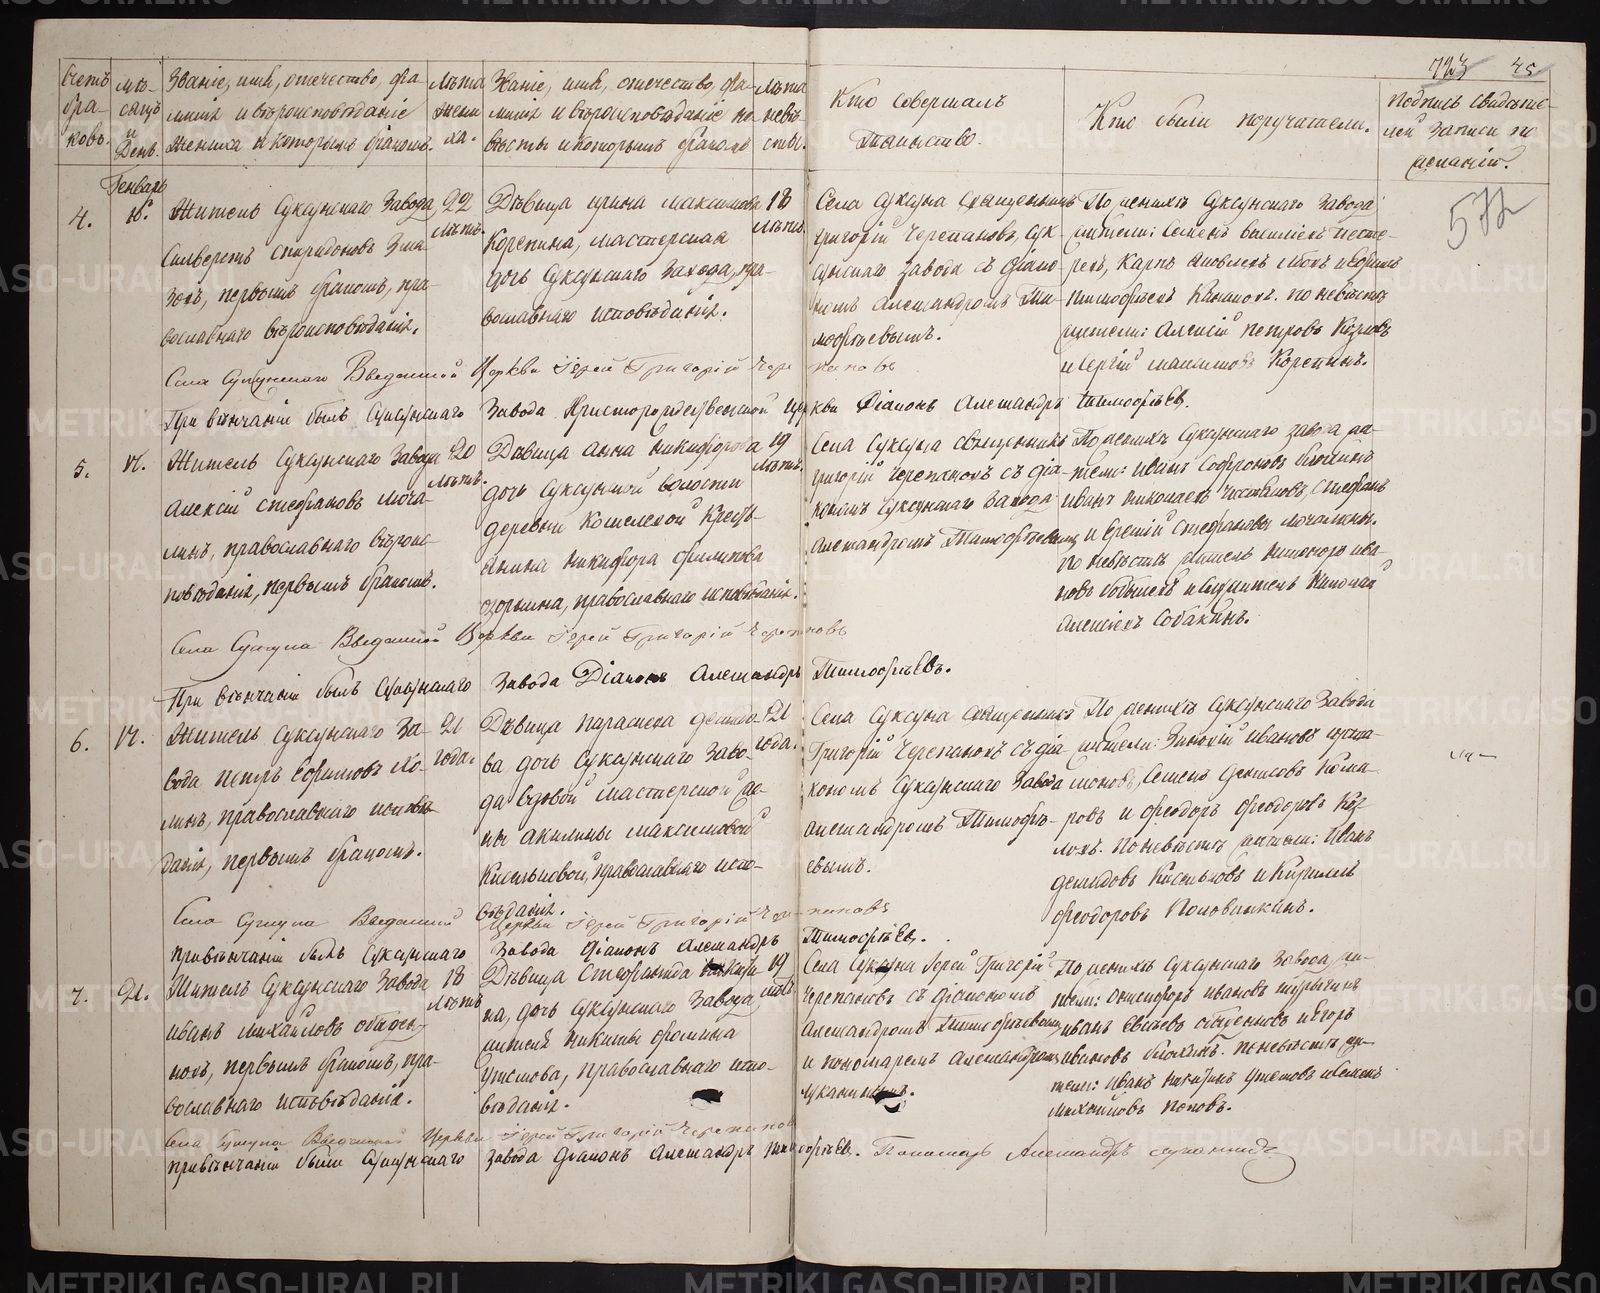 723 45
Счетъ бра- ковъ.
мѣ- сяцъ и День.
Званіе, имя, отечество, фа-
милія и вѣроисповѣданіе
жениха и которымъ бракомъ.
Лѣта жени- ха.
Званіе, имя, отечество, фа-
милія и вѣроисповѣданіе не-
вѣсты и которымъ бракомъ
Лѣта невѣ- сты.
Кто совершалъ
таинство.
Кто были поручатели.
Подпись свидѣте-
лей записи по
желанію.
Генварь
4.
18.
Житель Суксунскаго Завода
Силверстъ Спиридоновъ
первымъ бракомъ, пра-
вославнаго вѣроисповѣданія.
22
лѣтъ.
Дѣвица Ирина Максимова
Корепина, мастерская
дочь Суксунскаго Завода, пра-
вославнаго исповѣданія.
18
лѣтъ.
Села Суксуна Священникъ
Григорій Черепановъ, Сук-
сунскаго завода съ діако-
номъ Александромъ Ти-
мофѣевымъ.
По женихѣ Суксунскаго Завода
жители: Семенъ Василіевъ
Карпъ Яковлевъ
Тимофѣевъ по невѣстѣ
жители: Алексій Петровъ Козловъ
и Сергій Максимовъ Корепинъ.
572
Села Суксунскаго Введенской Церкви Іерей Григорій Черепановъ
При вѣнчаніи былъ Суксунскаго Завода Христорождественской Церкви Діаконъ Александръ Тимофѣев.
5.
Житель Суксунскаго Завода
Алексій Стефановъ Моча-
линъ, православнаго вѣроис-
повѣданія, первымъ бракомъ.
20
лѣтъ.
Дѣвица Анна Никифорова
дочь Суксунской волости
деревни Кошелевой Кресть-
янина Никифора Филипова
православнаго исповѣданія.
19
лѣтъ.
Села Суксуна священникъ
Григорій Черепановъ съ діа-
кономъ Суксунскаго Завода
Александромъ Тимофѣевымъ
По женихѣ Суксунскаго завода жи-
тели: Иванъ Софроновъ
Иванъ Николаевъ Стефанъ
и Стефановы Мочалины.
По невѣстѣ житель
и служитель Николай
Алексіевъ Собакинъ.
Села Суксуна Введенской Церкви Іерей Григорій Черепановъ
При вѣнчаніи былъ Суксунскаго Завода Діаконъ Александръ Тимофѣевъ.
6.
Житель Суксунскаго За-
вода Петръ Ефимовъ
православнаго исповѣ-
данія, первымъ бракомъ.
21
года.
Дѣвица Параскева Демидо-
ва дочь Суксунскаго Заво-
да вдовой мастерской же-
ны Акилины Максимовой
Кисельновой, православнаго испо-
вѣданія.
21
года.
Села Суксуна Священникъ
Григорій Черепановъ съ діа-
кономъ Суксунскаго Завода
Александромъ Тимофѣ-
евымъ.
По женихѣ Суксунскаго Завода
жители: Зиновій Ивановъ
Семенъ Денисовъ Кома-
ровъ и Феодоръ Феодоровъ Коз-
ловъ. По невѣстѣ жители: Иванъ
Демидовъ Кисельновъ и Кириллъ
Феодоровъ Половинкинъ.
Села Суксуна Введенской Церкви Іерей Григорій Черепановъ
При вѣнчаніи былъ Суксунскаго Завода Діаконъ Александръ Тимофѣев.
7.
21.
Житель Суксунскаго Завода
Иванъ Михайловъ
первымъ бракомъ, пра-
вославнаго исповѣданія.
18
лѣтъ
Дѣвица Стефанида Ники-
на, дочь Суксунскаго Завода
жителя Никиты Фомина
Утемова, православнаго испо-
вѣданія.
19
лѣтъ
Села Суксуна Іерей Григорій
Черепановъ съ діакономъ
Александромъ Тимофѣевымъ
и пономаремъ Александромъ
Луканинымъ.
По женихѣ Суксунскаго Завода жи-
тели: Онисифоръ Ивановъ
Иванъ и Егоръ
Ивановъ По невѣстѣ жи-
тели: Иванъ Никитинъ Утемовъ и Семенъ
Михайловъ Поповъ.
Села Суксуна Введенской Церкви Іерей Григорій Черепановъ
При вѣнчаніи были Суксунскаго Завода Діаконъ Александръ Тимофѣев. Пономарь Александръ Луканинъ
METRIKI.GASO-URAL.RU